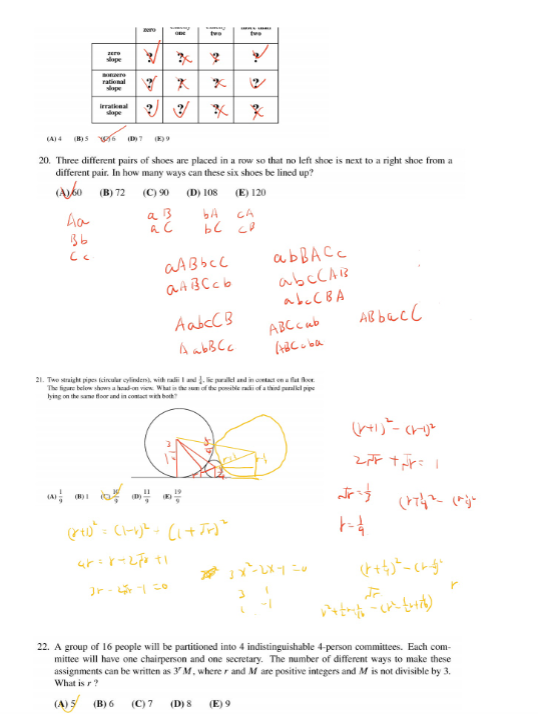 zero
one
two
two
zero
slope
? ? ? ?
nonzero
rational
slope
? ? ? ?
irrational
slope
? ? ? ?
(A) 4 (B) 5 (C) 6 (D) 7 (E) 9
20. Three different pairs of shoes are placed in a row so that no left shoe is next to a right shoe from a
different pair. In how many ways can these six shoes be lined up?
(A) 60 (B) 72 (C) 90 (D) 108 (E) 120
Aa
Bb
Cc
aB bA cA
aC bC cB
aABbcC
aABCcb
abBACc
abcCAB
abcCBA
AabcCB
AabBCc
ABCcab
ABCcba
ABbacC
21. Two straight pipes (circular cylinders), with radii 1 and 1/4, lie parallel and in contact on a flat floor.
The figure below shows a head-on view. What is the sum of the possible radii of a third parallel pipe
lying on the same floor and in contact with both?
(A) 1/9 (B) 1 (C) 10/9 (D) 11/9 (E) 19/9
(r+1)² - (r-1)²
2√r + √r = 1
√r = 1/3
r = 1/9
(r+1)² = (1-r)² + (1+√r)²
4r = r + 2√r + 1
3r - 2√r - 1 = 0
3x² - 2x - 1 = 0
3 1
1 -1
(r+1/4)² - (r-1/4)²
√r
r
22. A group of 16 people will be partitioned into 4 indistinguishable 4-person committees. Each com-
mittee will have one chairperson and one secretary. The number of different ways to make these
assignments can be written as 3ʳM, where r and M are positive integers and M is not divisible by 3.
What is r ?
(A) 5 (B) 6 (C) 7 (D) 8 (E) 9